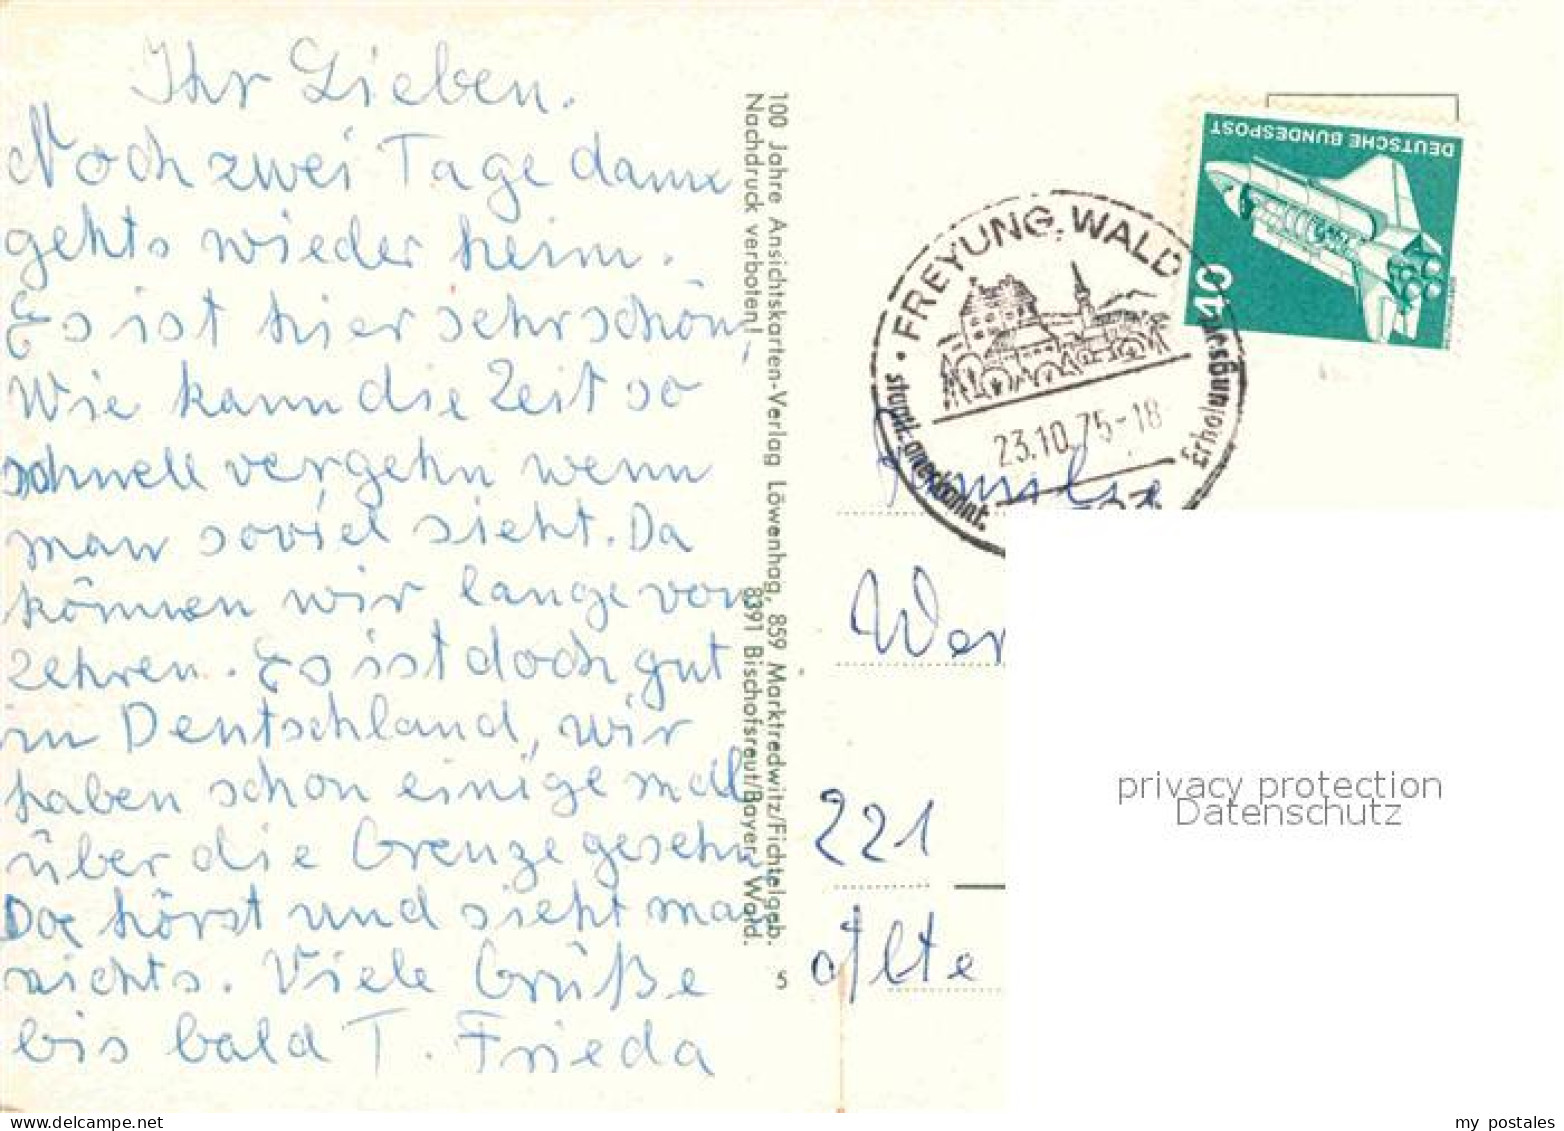 Ihr Lieben.
Noch zwei Tage dann
gehts wieder heim.
Es ist hier sehr schön,
Wie kann die Zeit so
schnell vergehn wenn
man soviel sieht. Da
können wir lange von
zehren. Es ist doch gut
in Deutschland, wir
haben schon einige mal
über die Grenze gesehn
Da hörst und sieht man
nichts. Viele Grüße
bis bald T. Frieda
100 Jahre Ansichtskarten-Verlag Löwenhag, 859 Marktredwitz/Fichtelgeb.
Nachdruck verboten! 8391 Bischofsreut/Bayer. Wald.
5
DEUTSCHE BUNDESPOST
40
FREYUNG, WALD
staatl. anerkannt.
Erholungsort
23.10.75-18
Familie
Wer
221
Alte
privacy protection
Datenschutz
my postales